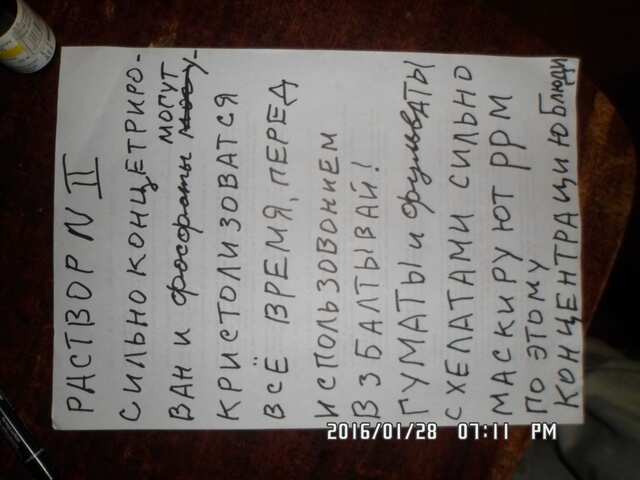 РАСТВОР N II
СИЛЬНО КОНЦЕТРИРО-
ВАН И фосфаты МОГУТ
КРИСТОЛИЗОВАТСЯ
ВСЁ ВРЕМЯ, ПЕРЕД
ИСПОЛЬЗОВОНИЕМ
ВЗБАЛТЫВАЙ!
ГУМАТЫ и фульвАТЫ
С ХЕЛАТАМИ СИЛЬНО
МАСКИРУЮТ PPM
ПО ЭТОМУ
КОНЦЕНТРАЦИЮ БЛЮДИ
2016/01/28 07:11 PM